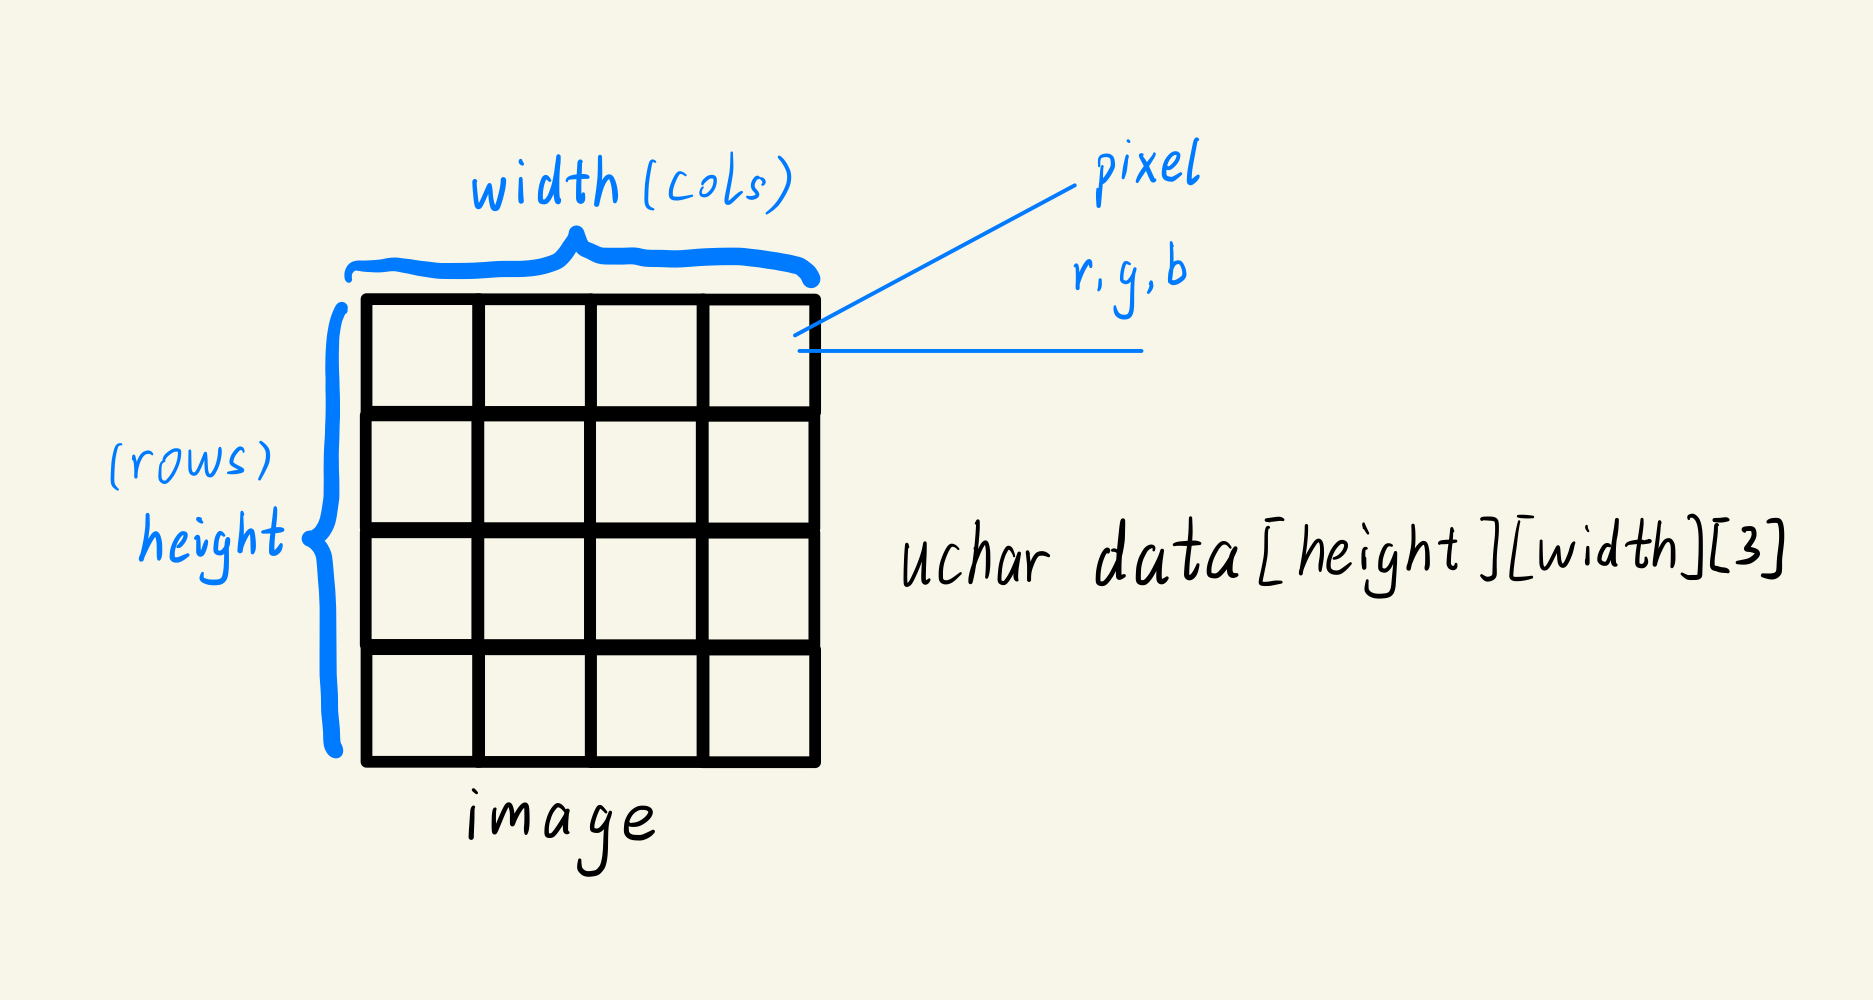 width (cols)
pixel
r, g, b
(rows)
height
uchar data[height][width][3]
image